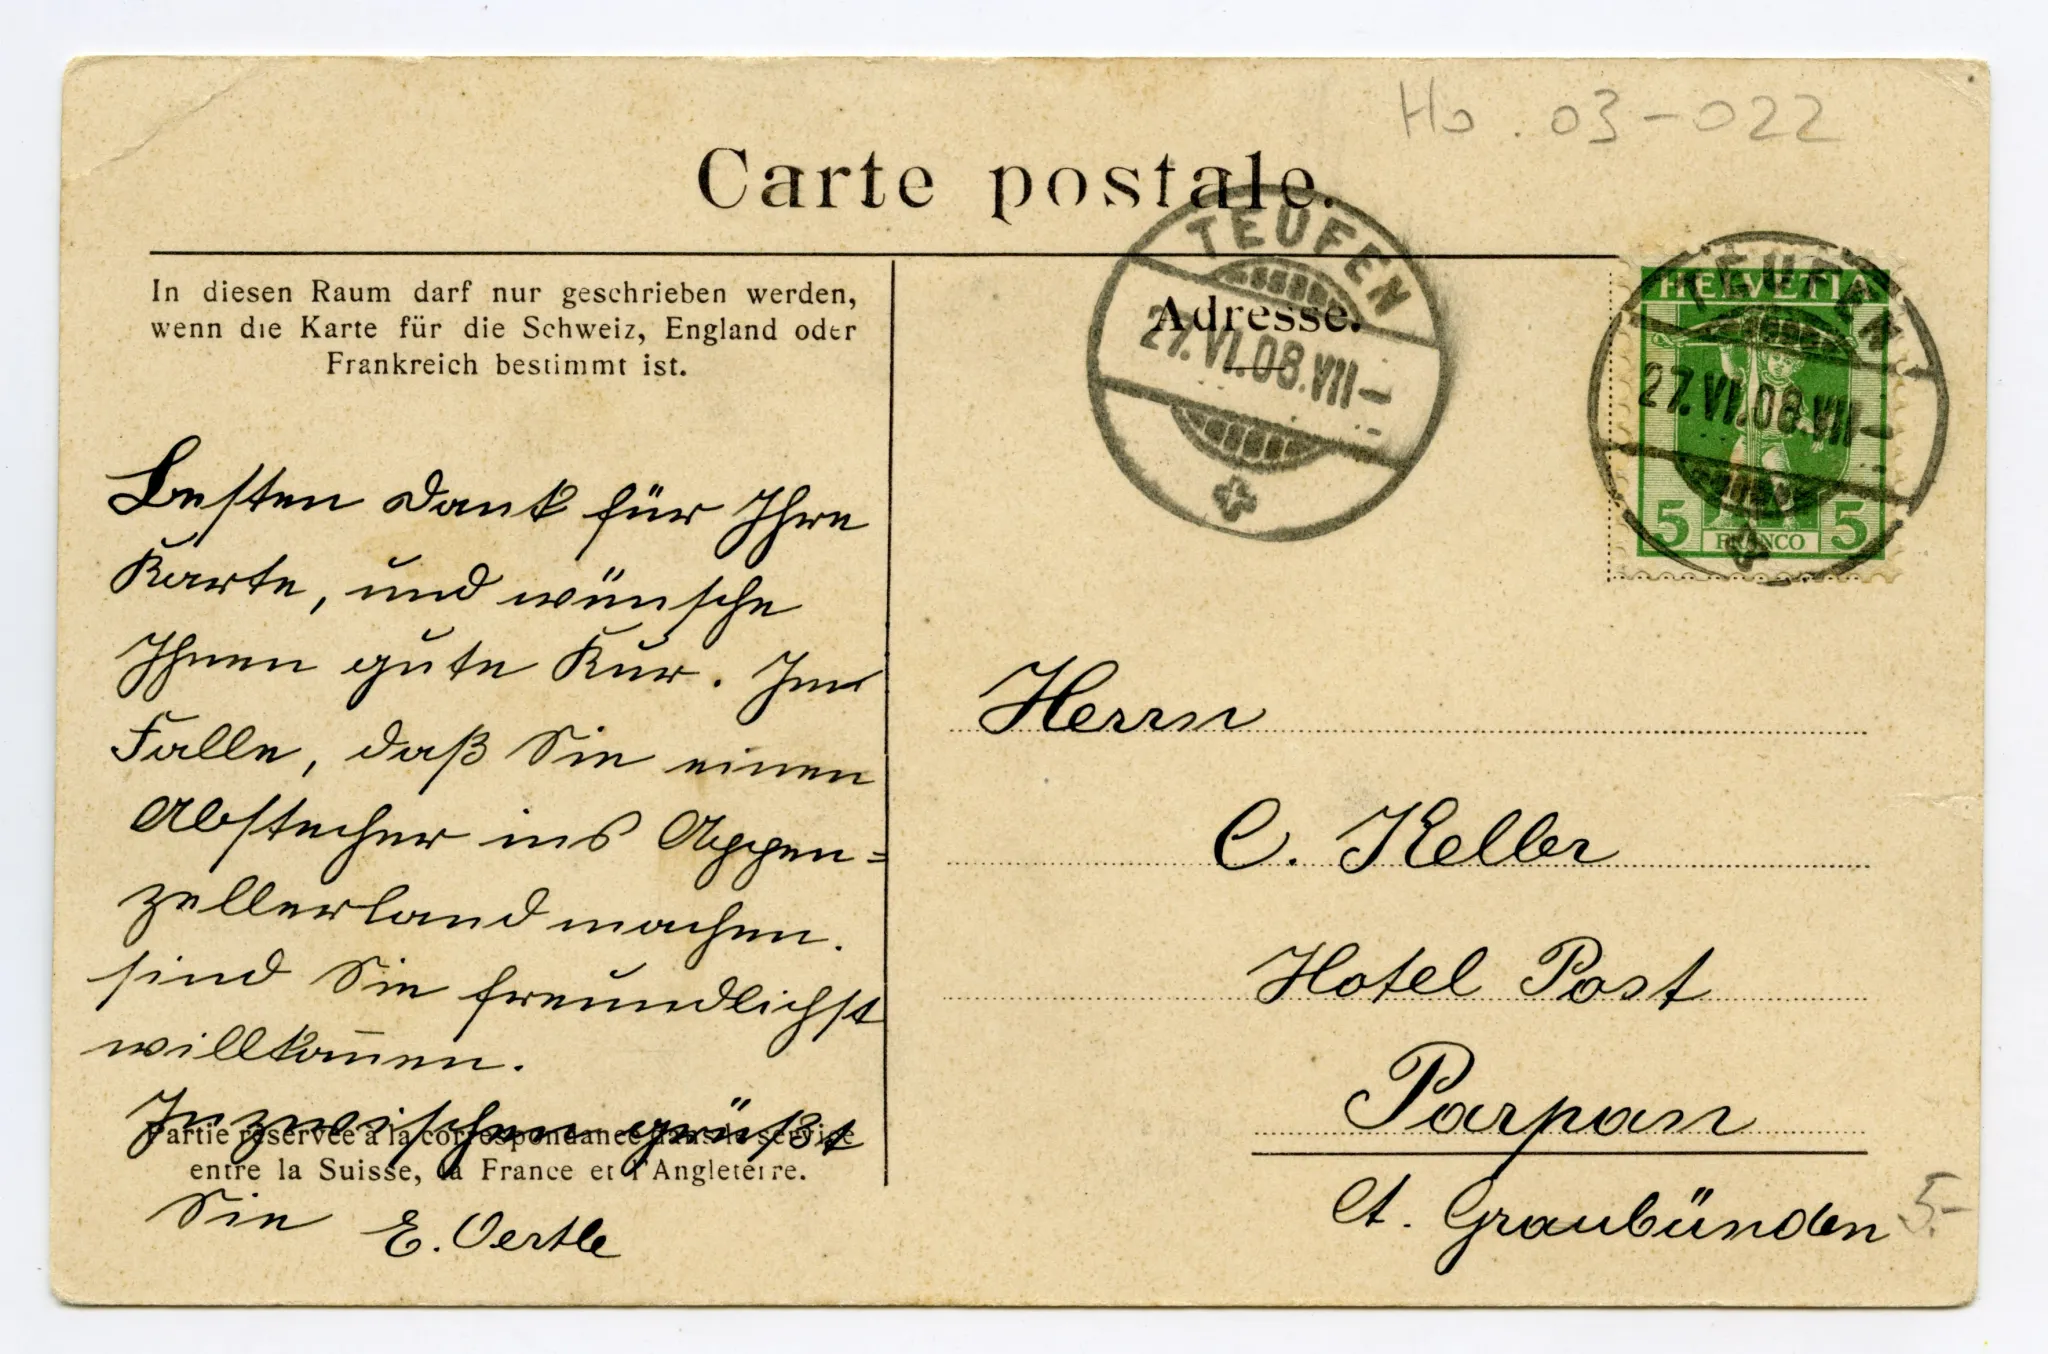 Ho. 03-022
Carte postale.
In diesen Raum darf nur geschrieben werden,
wenn die Karte für die Schweiz, England oder
Frankreich bestimmt ist.
Besten Dank für Ihre
Karte, und wünsche
Ihnen gute Kur. Im
Falle, daß Sie einen
Abstecher ins Appen=
zellerland machen.
sind Sie freundlichst
willkom̅en.
Inzwischen grüßt
Partie réservée à la correspondance dans le service
entre la Suisse, la France et l'Angleterre.
Sie E. Oertle
TEUFEN
Adresse.
27.VI.08.VII-
HELVETIA
TEUFEN
27.VI.08.VII-
5 FRANCO 5
Herrn
C. Keller
Hotel Post
Parpan
Ct. Graubünden
5.-